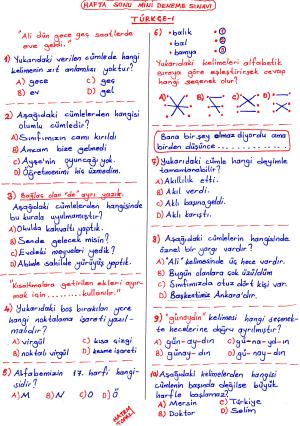 HAFTA SONU MİNİ DENEME SINAVI
TÜRKÇE-1
"Ali dün gece geç saatlerde
eve geldi."
1) Yukarıdaki verilen cümlede hangi
kelimenin zıt anlamlısı yoktur?
A) gece C) geç
B) ev D) gel
2) Aşağıdaki cümlelerden hangisi
olumlu cümledir?
A) Sınıfımızın camı kırıldı
B) Amcam bize gelmedi
C) Ayşe'nin oyuncağı yok.
D) Öğretmenimi hiç üzmedim.
3) Bağlaç olan "de" ayrı yazılır.
Aşağıdaki cümlelerden hangisinde
bu kurala uyulmamıştır?
A) Okulda kahvaltı yaptık.
B) Sende gelecek misin?
C) Evdeki nöbetleri yedik?
D) Akilede sahilde yürüyüş yaptık.
"Kısaltmalara getirilen ekleri ayır-
mak için ........ kullanılır."
4) Yukarıdaki boş bırakılan yere
hangi noktalama işareti yazıl-
malıdır?
A) virgül C) kısa çizgi
B) noktalı virgül D) kesme işareti
5) Alfabemizin 17. harfi hangi-
sidir?
A) M B) N C) O D) Ö
6) • balık • 1
• bal • 2
• banyo • 3
Yukarıdaki kelimeleri alfabetik
sıraya göre eşleştirirsek cevap
hangi seçenek olur?
A) B) C) D)
Bana bir şey olmaz diyordu ama
birden düşünce ............
7) Yukarıdaki cümle hangi deyimle
tamamlanabilir?
A) Akıllılık etti.
B) Akıl verdi.
C) Aklı başına geldi.
D) Aklı karıştı.
8) Aşağıdaki cümlelerin hangisinde
öznel bir yargı vardır?
A) "Ali" kelimesinde üç hece vardır.
B) Bugün olanlara çok üzüldüm
C) Sınıfımızda otuz dört kişi var.
D) Başkentimiz Ankara'dır.
9) "günaydın" kelimesi hangi seçenek-
te hecelerine doğru ayrılmıştır?
A) gün-ay-dın C) gü-na-yd-ın
B) günay-dın D) gü-nay-dın
10) Aşağıdaki kelimelerden hangisi
cümlenin başında değilse büyük
harfle başlamaz?
A) Mersin C) Türkiye
B) Doktor D) Selim